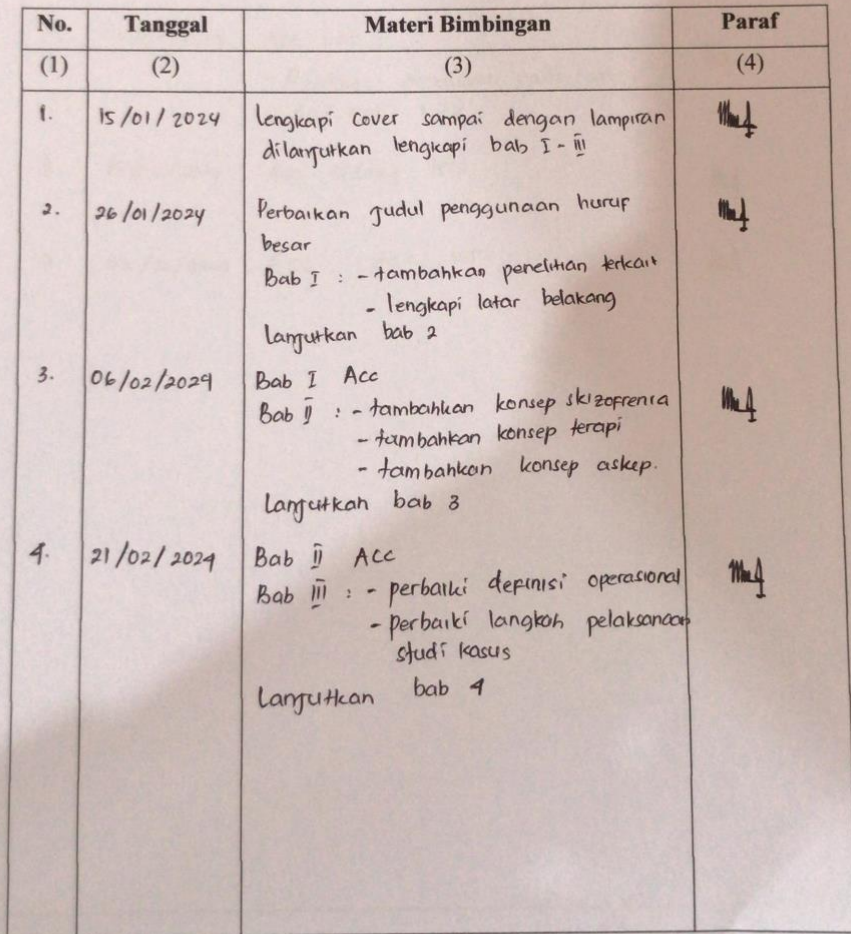 No. Tanggal Materi Bimbingan Paraf
(1) (2) (3) (4)
1. 15/01/2024 Lengkapi cover sampai dengan lampiran
dilanjutkan lengkapi bab I - III
2. 26/01/2024 Perbaikan judul penggunaan huruf
besar
Bab I : - tambahkan penelitian terkait
- lengkapi latar belakang
Lanjutkan bab 2
3. 06/02/2024 Bab I Acc
Bab II : - tambahkan konsep skizofrenia
- tambahkan konsep terapi
- tambahkan konsep askep.
Lanjutkan bab 3
4. 21/02/2024 Bab II Acc
Bab III : - perbaiki definisi operasional
- perbaiki langkah pelaksanaan
studi kasus
Lanjutkan bab 4